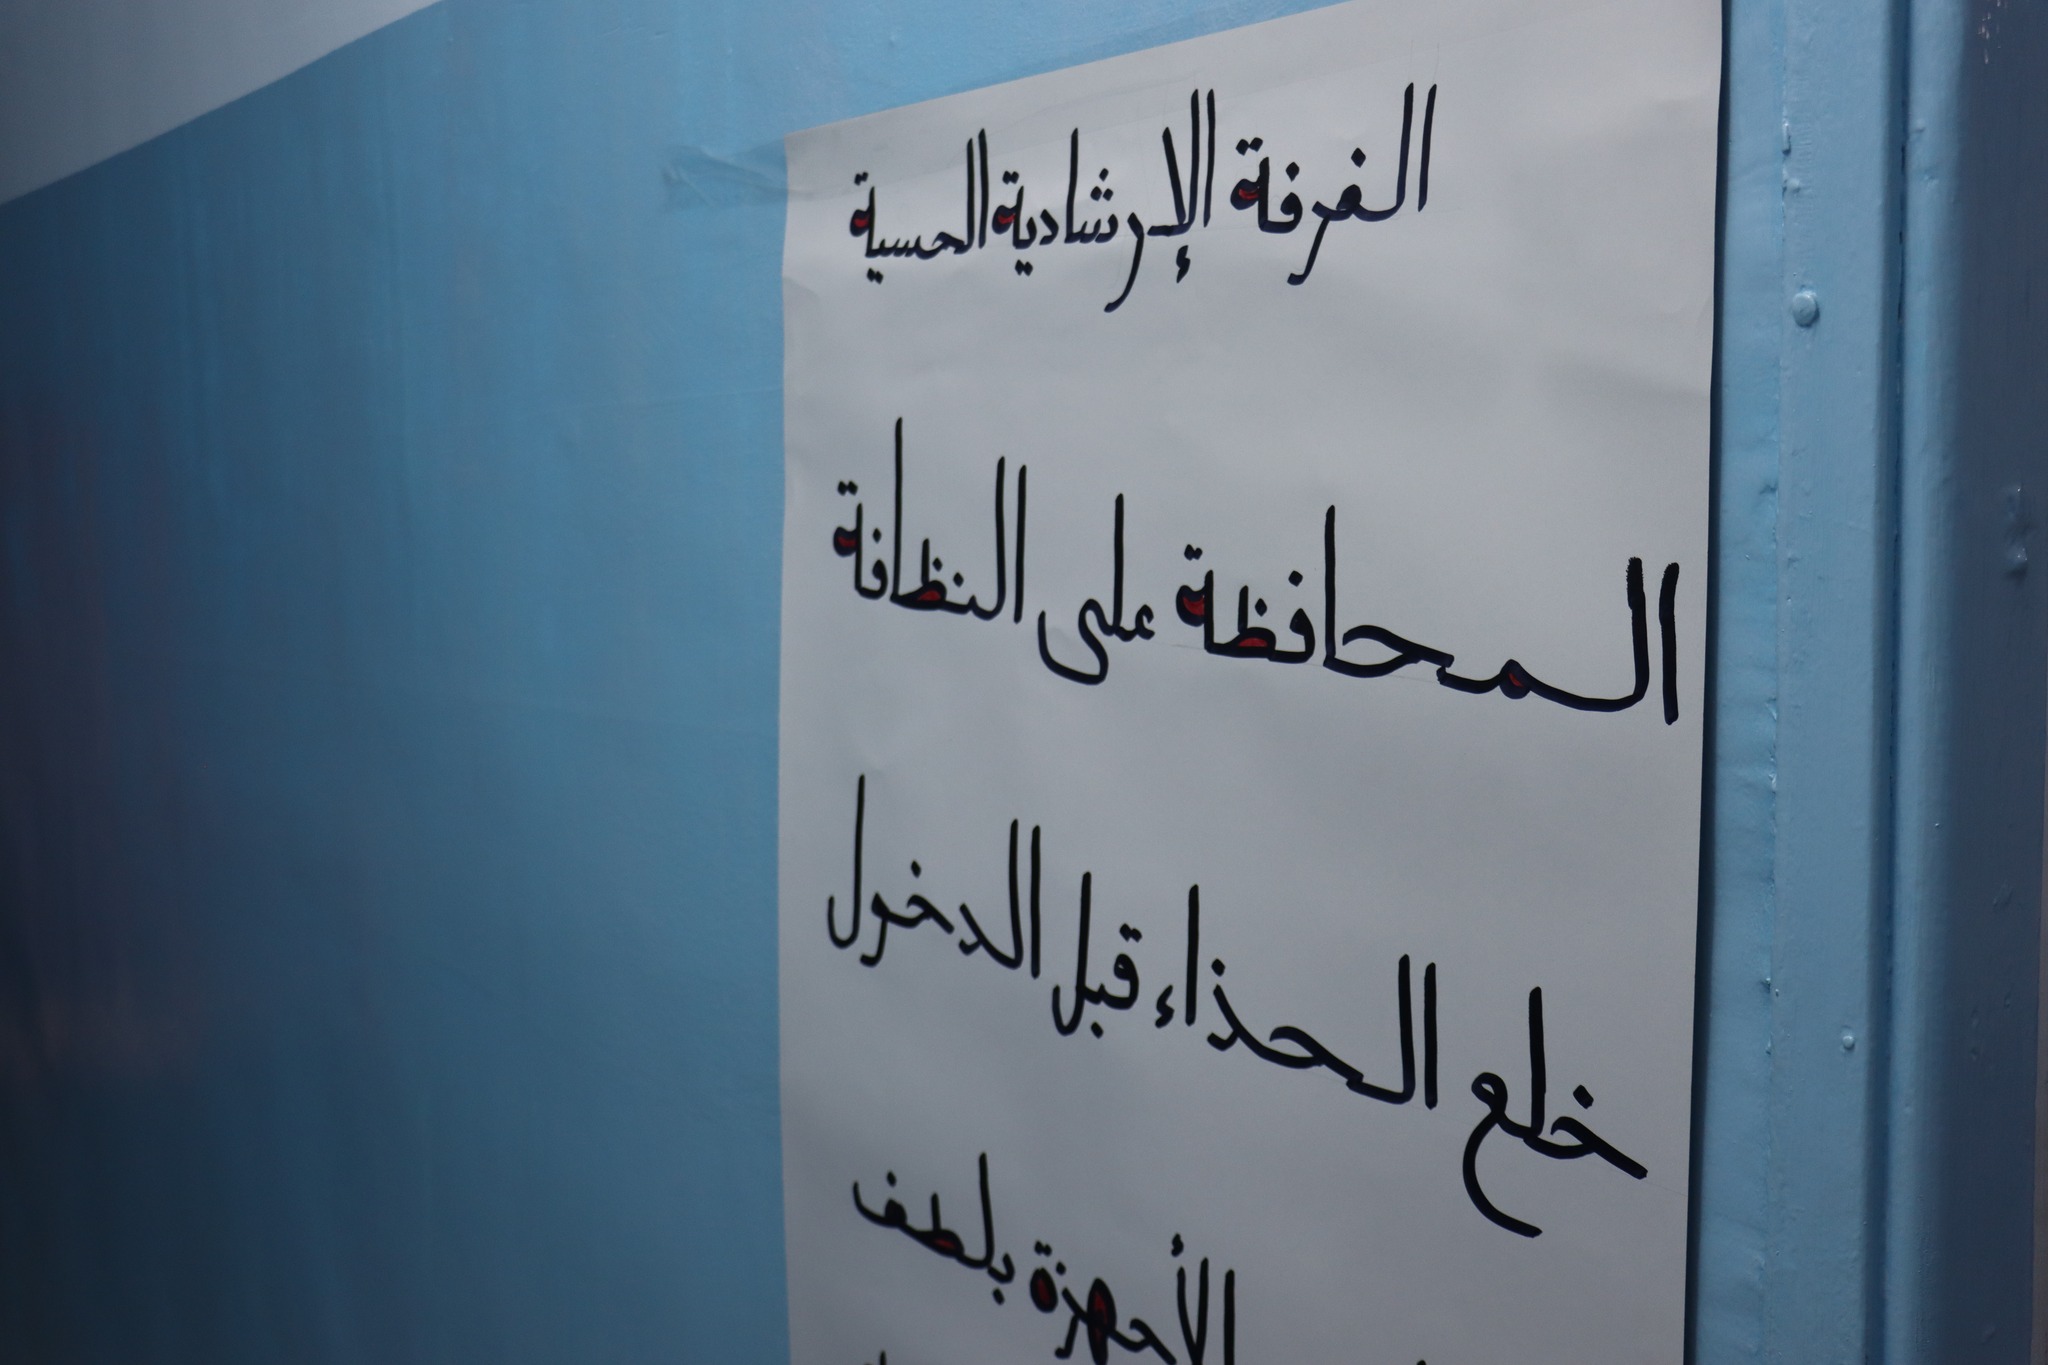 الغرفة الإرشادية الحسية
المحافظة على النظافة
خلع الحذاء قبل الدخول
الأجهزة بلطف